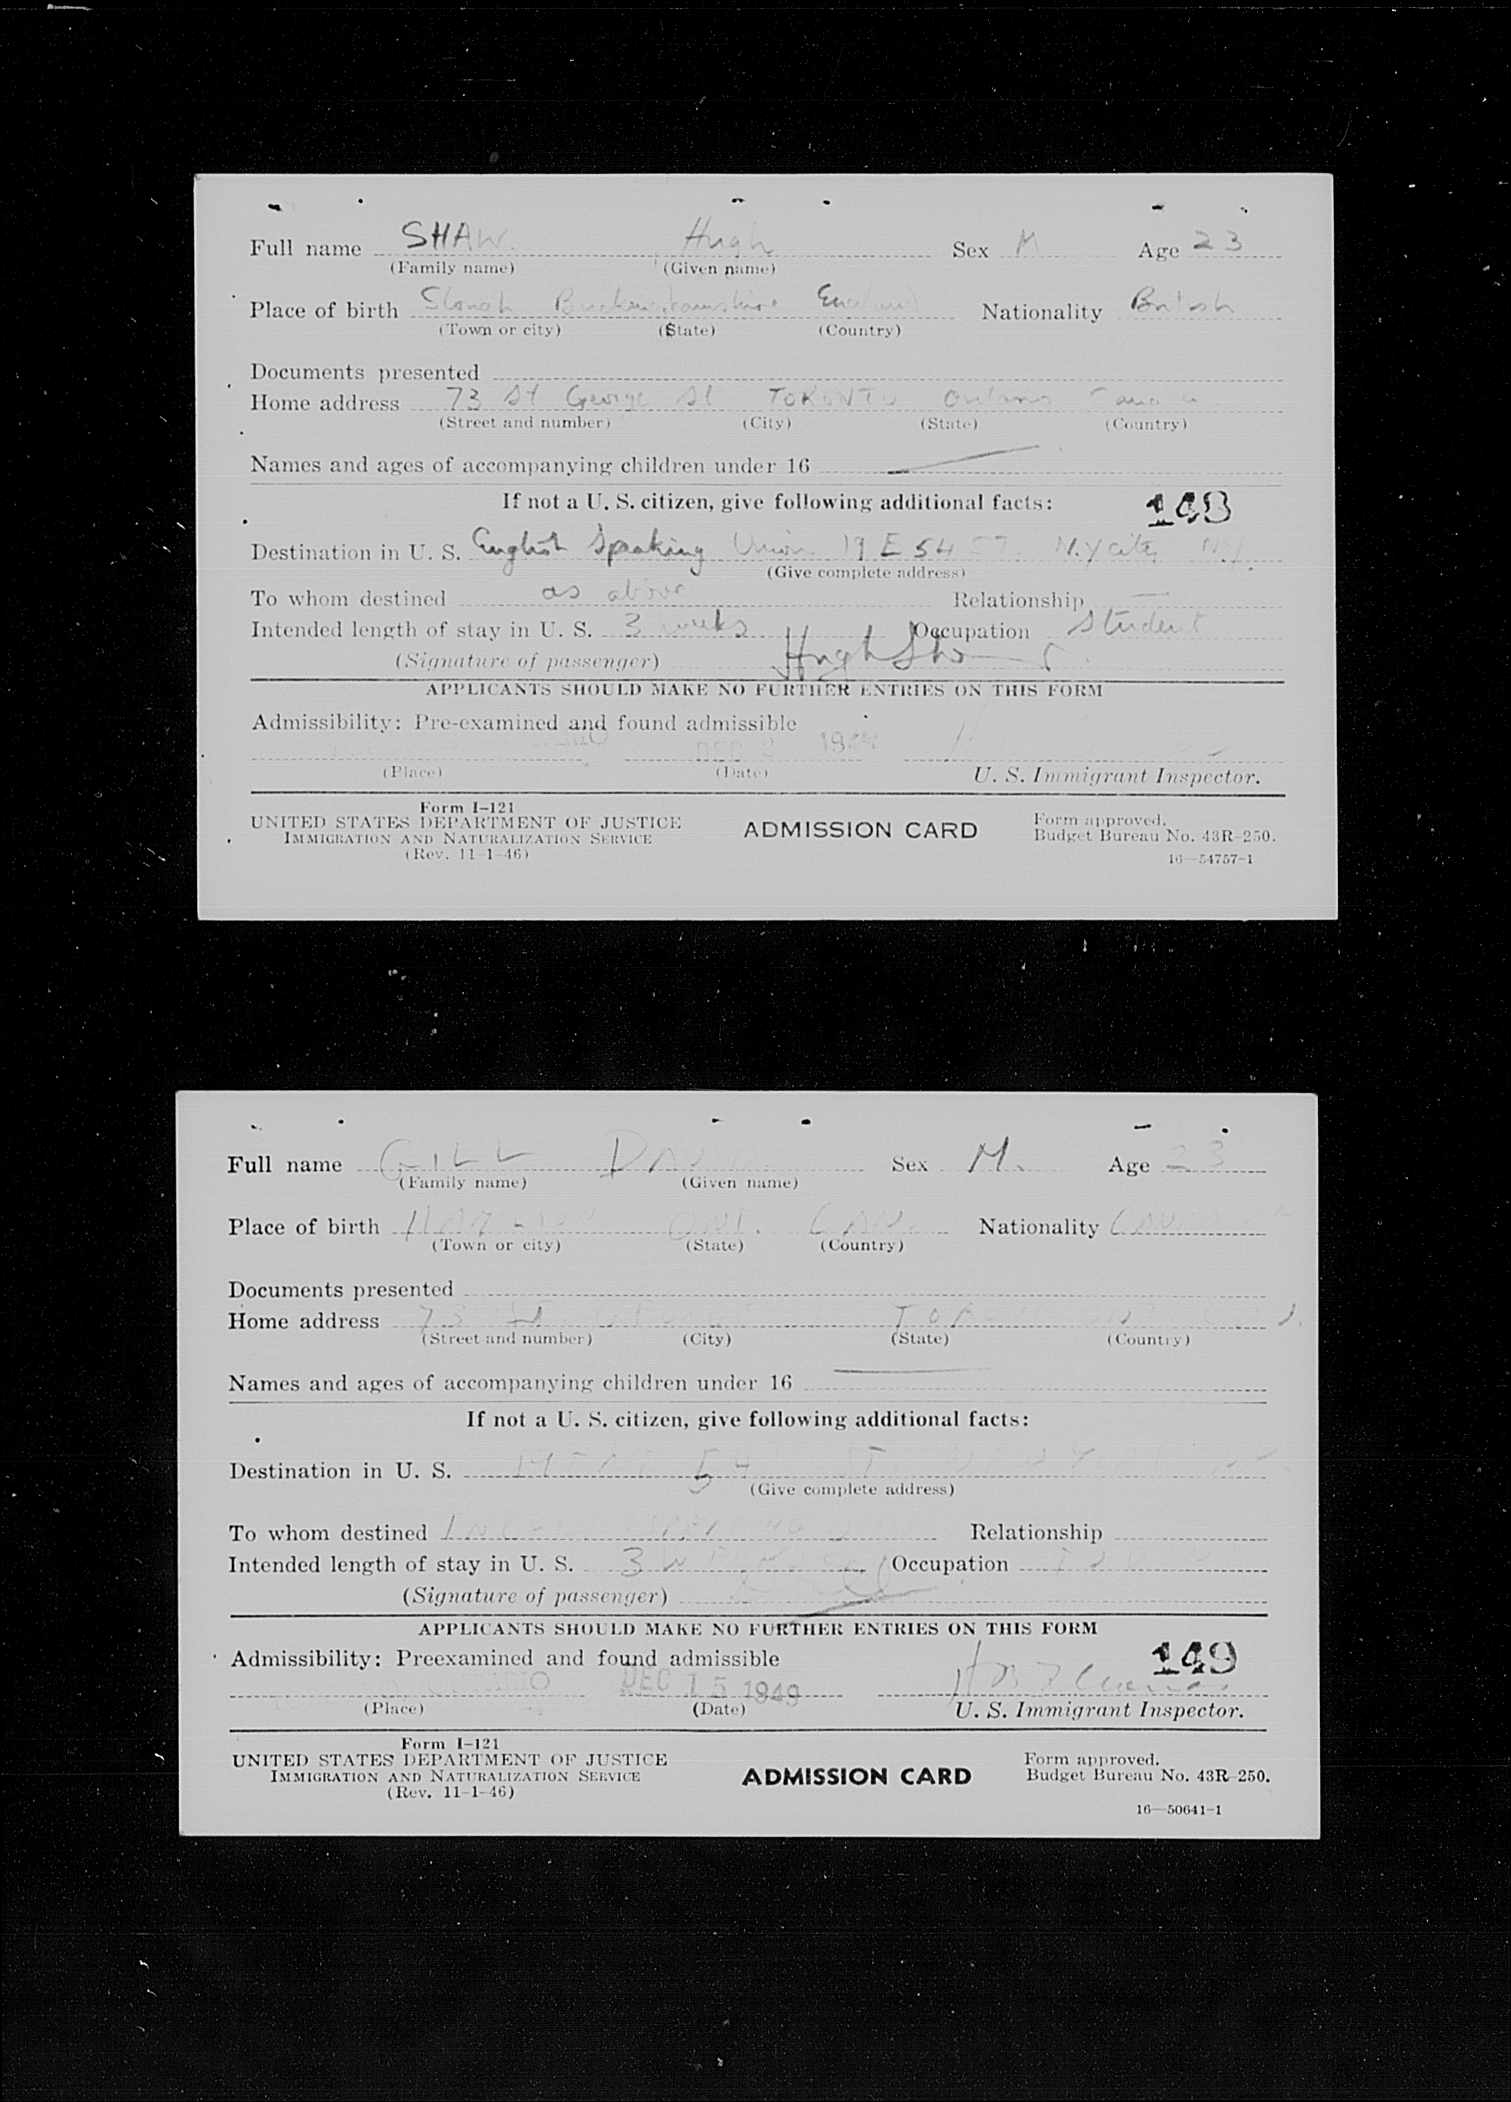 Full name SHAW Hugh Sex M Age 23
(Family name) (Given name)
Place of birth Slough Buckinghamshire England Nationality British
(Town or city) (State) (Country)
Documents presented
Home address 73 St George St TORONTO Ontario Canada
(Street and number) (City) (State) (Country)
Names and ages of accompanying children under 16
If not a U. S. citizen, give following additional facts:
Destination in U. S. English Speaking Union 19 E 54 ST. N.Y city N.Y.
(Give complete address)
To whom destined as above Relationship —
Intended length of stay in U. S. 3 weeks Occupation Student
(Signature of passenger) Hugh Shaw
APPLICANTS SHOULD MAKE NO FURTHER ENTRIES ON THIS FORM
Admissibility: Pre-examined and found admissible
(Place) (Date) U. S. Immigrant Inspector.
Form I-121
UNITED STATES DEPARTMENT OF JUSTICE ADMISSION CARD Form approved.
IMMIGRATION AND NATURALIZATION SERVICE Budget Bureau No. 43R-250.
(Rev. 11-1-46) 16—54757-1
Full name GILL DAVID Sex M. Age 23
(Family name) (Given name)
Place of birth ONT. CAN. Nationality
(Town or city) (State) (Country)
Documents presented
Home address 73 ST
(Street and number) (City) (State) (Country)
Names and ages of accompanying children under 16
If not a U. S. citizen, give following additional facts:
Destination in U. S. 54
(Give complete address)
To whom destined Relationship
Intended length of stay in U. S. 3 Occupation
(Signature of passenger)
APPLICANTS SHOULD MAKE NO FURTHER ENTRIES ON THIS FORM
Admissibility: Preexamined and found admissible 149
DEC 15 1949
(Place) (Date) U. S. Immigrant Inspector.
Form I-121
UNITED STATES DEPARTMENT OF JUSTICE ADMISSION CARD Form approved.
IMMIGRATION AND NATURALIZATION SERVICE Budget Bureau No. 43R-250.
(Rev. 11-1-46)
16—50641-1